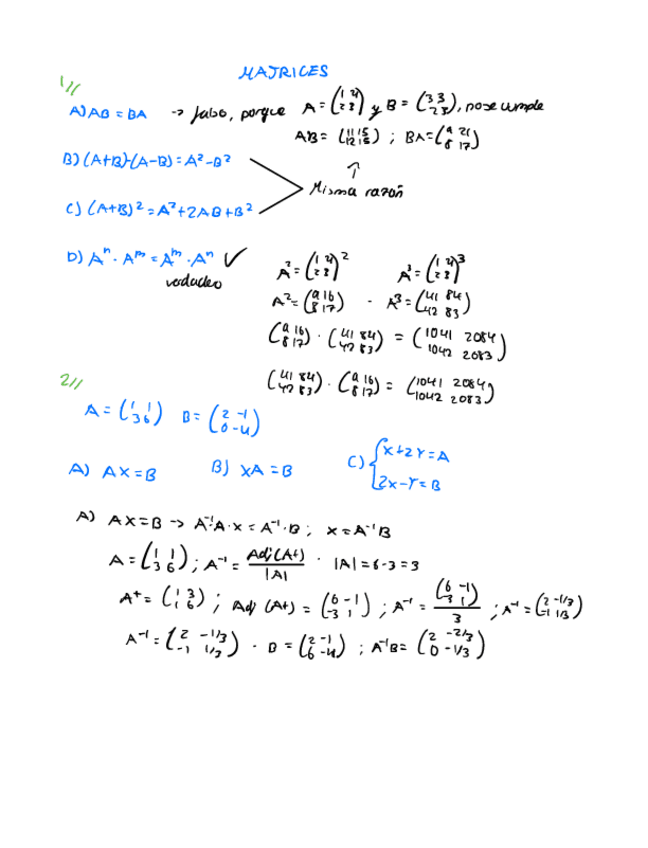 MATRICES
1//
A) AB = BA → falso, porque A = (1 4 / 2 3) y B = (3 3 / 2 3), no se cumple
AB = (11 15 / 12 15) ; BA = (9 21 / 8 17)
B) (A+B)·(A-B) = A²-B²
↑
Misma razón
C) (A+B)² = A²+2AB+B²
D) Aⁿ · Aᵐ = Aᵐ · Aⁿ ✓
verdadero
A² = (1 4 / 2 3)² A³ = (1 4 / 2 3)³
A² = (9 16 / 8 17) · A³ = (41 84 / 42 83)
(9 16 / 8 17) · (41 84 / 42 83) = (1041 2084 / 1042 2083)
(41 84 / 42 83) · (9 16 / 8 17) = (1041 2084 / 1042 2083)
2//
A = (1 1 / 3 6) B = (2 -1 / 0 -4)
A) AX = B B) XA = B C) { x+2Y = A
2x-Y = B
A) AX = B → A⁻¹·A·X = A⁻¹·B ; X = A⁻¹B
A = (1 1 / 3 6) ; A⁻¹ = Adj(At) / |A| · |A| = 6-3 = 3
At = (1 3 / 1 6) ; Adj (At) = (6 -1 / -3 1) ; A⁻¹ = (6 -1 / -3 1) / 3 ; A⁻¹ = (2 -1/3 / -1 1/3)
A⁻¹ = (2 -1/3 / -1 1/3) · B = (2 -1 / 6 -4) ; A⁻¹B = (2 -2/3 / 0 -1/3)